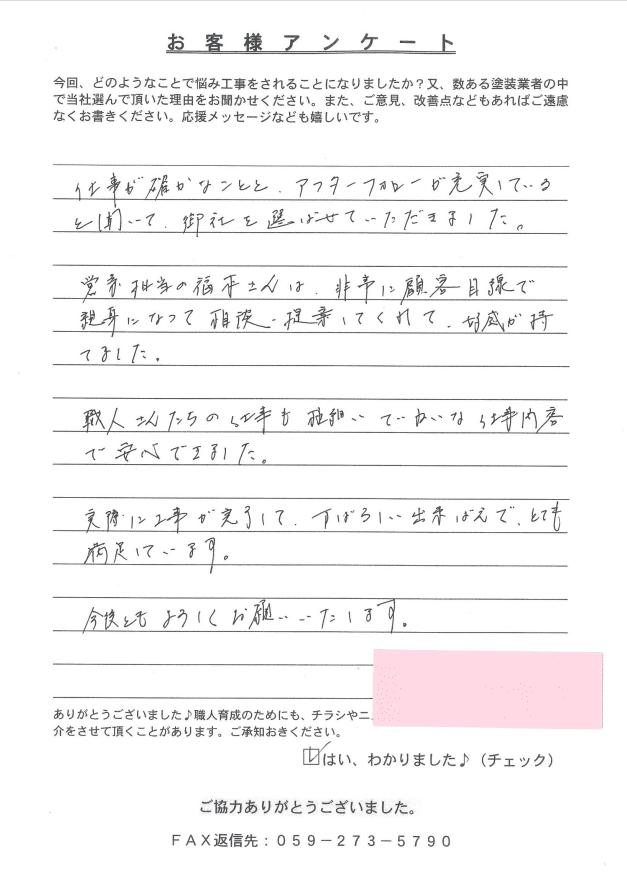 お客様アンケート
今回、どのようなことで悩み工事をされることになりましたか？又、数ある塗装業者の中
で当社選んで頂いた理由をお聞かせください。また、ご意見、改善点などもあればご遠慮
なくお書きください。応援メッセージなども嬉しいです。
仕事が確かなことと、アフターフォローが充実している
と聞いて、御社を選ばせていただきました。
営業担当の福本さんは、非常に顧客目線で
親身になって相談・提案してくれて、好感が持
てました。
職人さんたちの仕事も ていねいな仕事内容
で安心できました。
実際に工事が完了して、すばらしい出来ばえで、とても
満足しています。
今後ともよろしくお願いいたします。
ありがとうございました♪職人育成のためにも、チラシやニ
介をさせて頂くことがあります。ご承知おきください。
はい、わかりました♪（チェック）
ご協力ありがとうございました。
ＦＡＸ返信先：０５９－２７３－５７９０